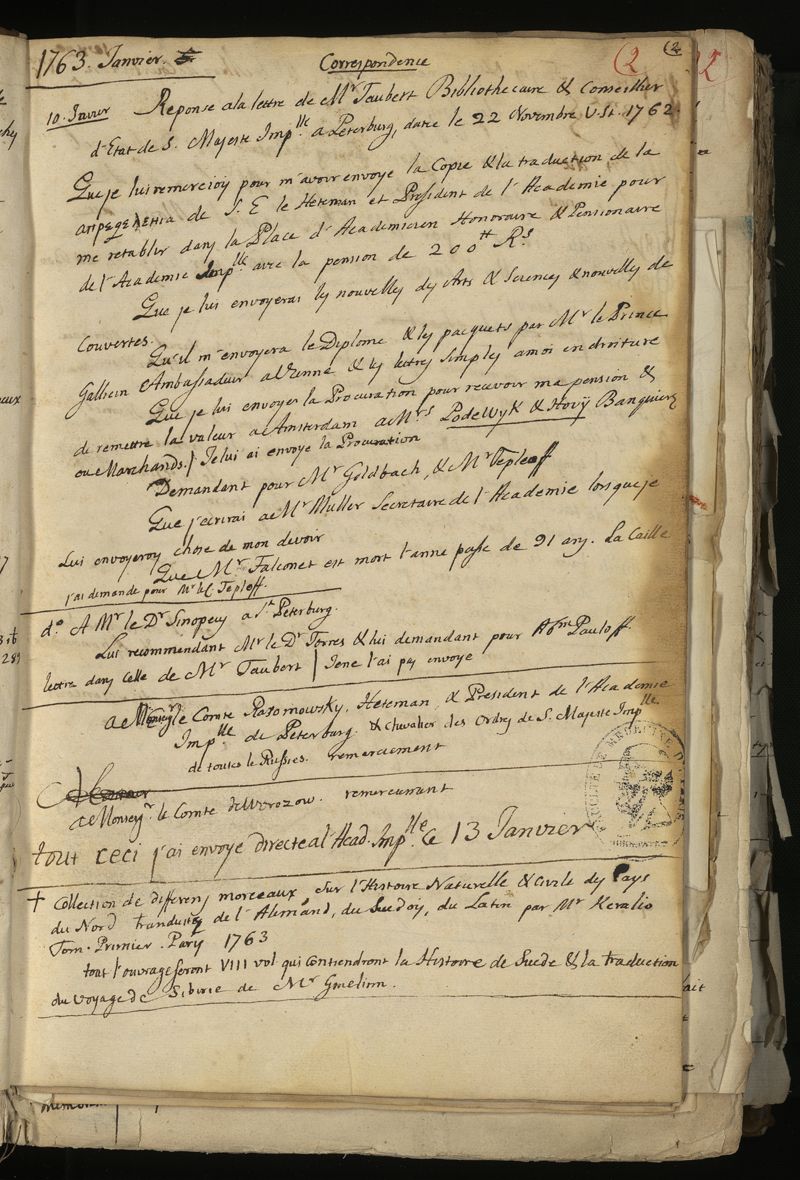 1763. Janvier.
Correspondence
(2
(2
10. Janvier Reponse a la lettre de Mr Taubert Bibliothecaire & Conseillier
d'Etat de S. Majeste Implle a Peterburg, datee le 22 Novembre V. St. 1762.
Que je lui remerciois pour m'avoir envoye la Copie & la traduction de la
de S. E le Heteman et President de l'Academie pour
me retablir dans la Place d'Academicien Honoraire & Pensionaire
de l'Academie Implle avec la pension de 200tt Rs
Que je lui envoyerai les nouvelles des Arts & Sciences & nouvelles de
couvertes.
Qu'il m'envoyera le Diplome & les pacquets par Mr le Prince
Gallicin Ambassadeur a Vienne & les lettres simples a moi en droiture
Que je lui envoyes la Procuration pour recevoir ma pension &
de remettre la valeur a Amsterdam a Mrs PodeWyk & Hovÿ Banquiers
ou Marchands. / Je lui ai envoye la Procuration
Demandant pour Mr Goldbach, & Mr Tepleoff
Que j'ecrirai a Mr Muller Secretaire de l'Academie lorsque je
Lui envoyeroy chose de mon devoir
Que Mr Falconet est mort l'anne passe de 91 ans. La Caille
j'ai demande pour Mr le Tepleff.
do A Mr le Dr Sinopeus a St Peterburg.
Lui recommendant Mr le Dr Torres & lui demandant pour Abm Pauloff
lettre dans celle de Mr Taubert / Je ne l'ai pas envoye
a le Comte Rasomowsky, Heteman, & President de l'Academie
Implle de Peterburg. & Chevalier des Ordres de S. Majeste Implle.
de toutes le Russies. remerciement
a Monseyr. le Comte de Worozow. remerciant
tout ceci j'ai envoye directe a l'Acad. Implle le 13 Janvier
+ Collection de differens morceaux sur l'Histoire Naturelle & Civile des Pays
du Nord traduites de l'Alemand, du Suedois, du Latin par Mr Keralio
Tom. Primier. Paris 1763
tout l'ouvrage seront VIII vol qui contiendront la Histoire de Suede & la traduction
du voyage de Siberie de Mr Gmelinn.